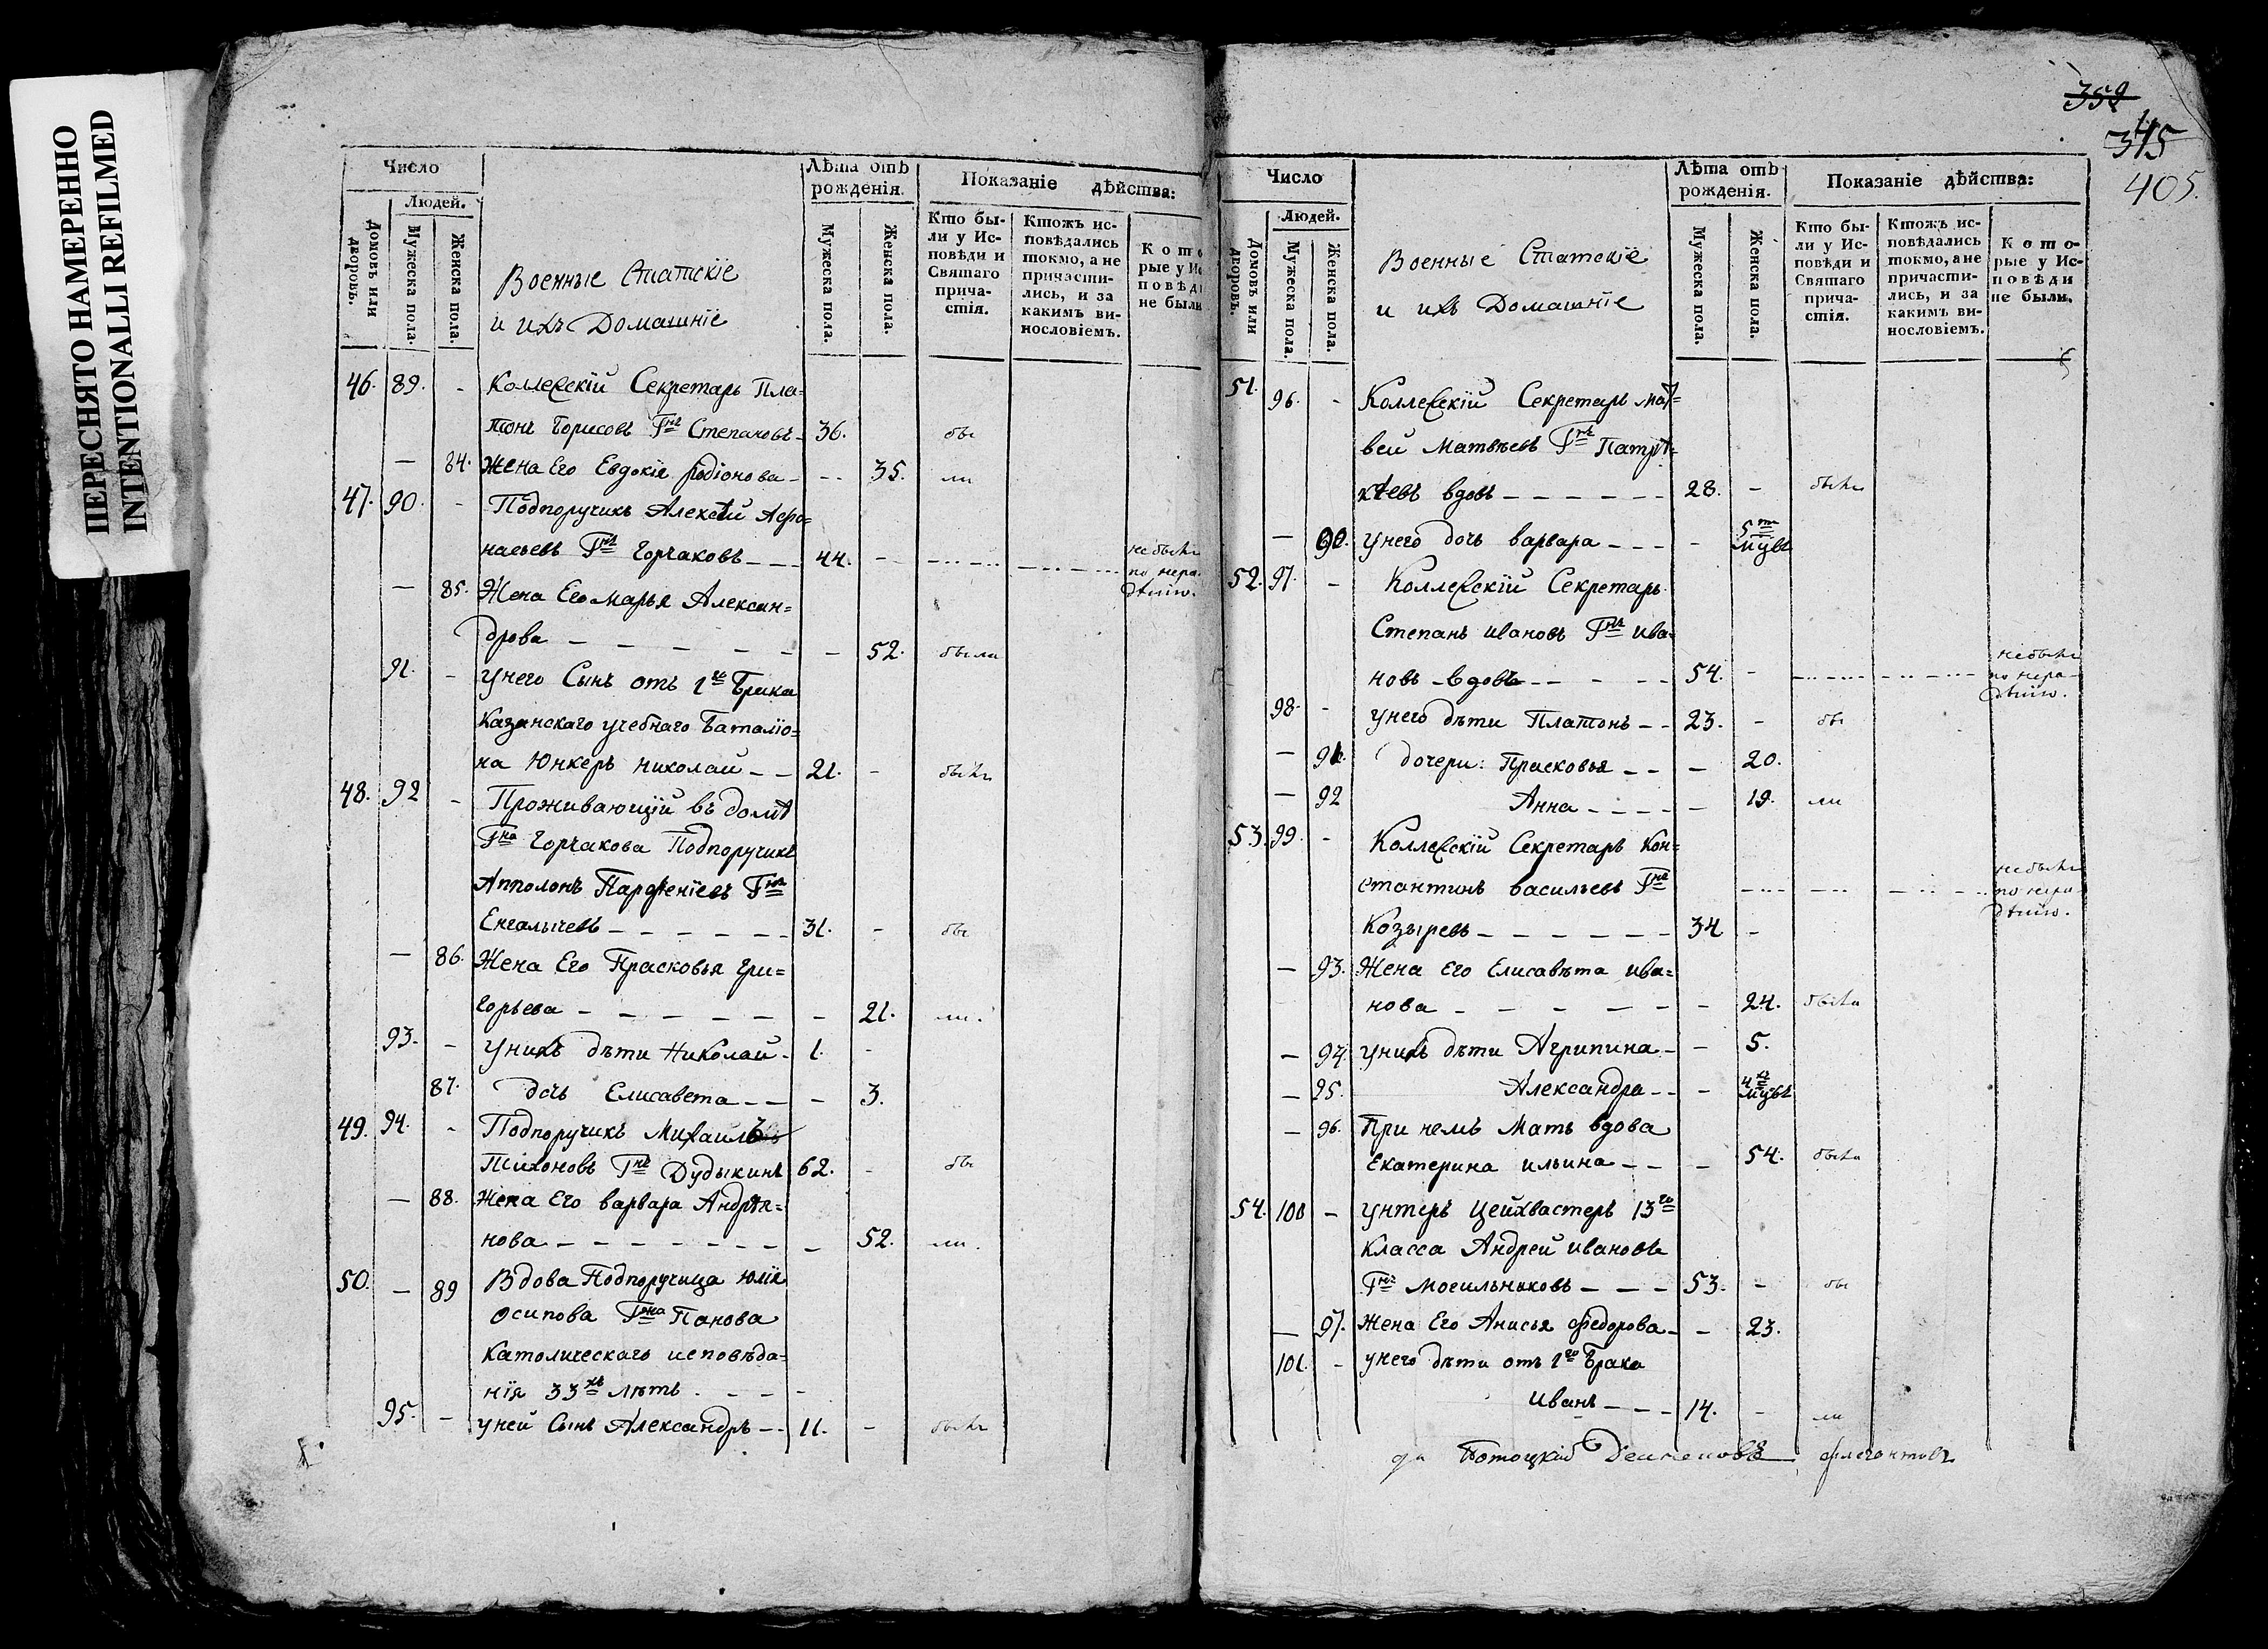 ПЕРЕСНЯТО НАМЕРЕННО
INTENTIONALLI REFILMED
Число
Людей.
Домовъ или дворовъ.
Мужеска пола.
Женска пола.
Военные Статскіе
и ихъ Домашніе
Лѣта отъ рожденія.
Мужеска пола.
Женска пола.
Показаніе дѣйства:
Кто бы-
ли у Ис-
повѣди и
Святаго
прича-
стія.
Ктожъ ис-
повѣдались
токмо, а не
причасти-
лись, и за
какимъ ви-
нословіемъ.
Кото
рые у Ис
повѣд
не были
46. 89. - Коллежскій Секретарь Пла=
тонъ Борисовъ Гнъ Степановъ - 36. бы
— 84. Жена Его Евдокія Родіонова - -- 35. ли
47. 90. - Подпоручикъ Алексѣй Афо=
насьевъ Гнъ Горчаковъ - - - 44. - не были
по нера-
дѣнію.
— 85. Жена Его Марья Алексан=
дрова - - - - - - - 52. была
91. - У него Сынъ отъ 1го Брака
Казанскаго учебнаго Баталіо=
на Юнкеръ Николай - - 21. - былъ
48. 92 - Проживающій въ домѣ
Гна Горчакова Подпоручикъ
Апполонъ Парфеніевъ Гнъ
Енгалычевъ - - - - - - 31. - бы
— 86. Жена Его Прасковья Гри=
горьева - - - - - - - 21. ли.
93. - У нихъ дѣти Николай - 1. -
87. дочь Елисавета - - - 3.
49. 94. - Подпоручикъ Михаилъ
Тихоновъ Гнъ Дудыкинъ 62. - бы
— 88. Жена Его Варвара Андрѣя=
нова - - - - - - - - 52. ли.
50. — 89 Вдова Подпоручица Юлія
Осипова Гжа Панова
Католическаго исповѣда=
нія 33хъ лѣтъ - - - -
95. - У ней Сынъ Александръ - - 11. - былъ
352
345
405.
Число
Людей.
Домовъ или дворовъ.
Мужеска пола.
Женска пола.
Военные Статскіе
и ихъ Домашніе
Лѣта отъ рожденія.
Мужеска пола.
Женска пола.
Показаніе дѣйства:
Кто бы-
ли у Ис-
повѣди и
Святаго
прича-
стія.
Ктожъ ис-
повѣдались
токмо, а не
причасти-
лись, и за
какимъ ви-
нословіемъ.
Кото-
рые у Ис-
повѣди
не были.
51. 96. - Коллежскій Секретарь Мат=
вей Матвѣевъ Гнъ Патрѣ=
кѣевъ вдовъ - - - - - - 28. - былъ
— 90. У него дочь Варвара - - - - 5ти мцъ
52. 97. - Коллежскій Секретарь
Степанъ Ивановъ Гнъ Ива=
новъ вдовъ - - - - - 54. - не былъ
по нера-
дѣнію.
98. - У него дѣти Платонъ - - 23. - бы
— 91. дочери: Прасковья - - - 20.
— 92 Анна - - - - - 19. ли
53. 99. - Коллежскій Секретарь Кон=
стантинъ Васильевъ Гнъ не былъ
по нера
дѣнію.
Козыревъ - - - - - - 34 -
— 93. Жена Его Елисавѣта Ива=
нова - - - - - - 24. была
— 94. У нихъ дѣти Агрипина - - 5.
— 95. Александра - - - 4хъ мцъ
— 96. При немъ Мать вдова
Екатерина Ильина - - - 54. была
54. 100 - Унтеръ Цейхвастеръ 13го
Класса Андрей Ивановъ
Гнъ Могильниковъ - - - 53. - бы
— 97. Жена Его Анисья Федорова - - 23.
101. - У него дѣти отъ 1го Брака
Иванъ - - - 14. - ли
Потоцкій